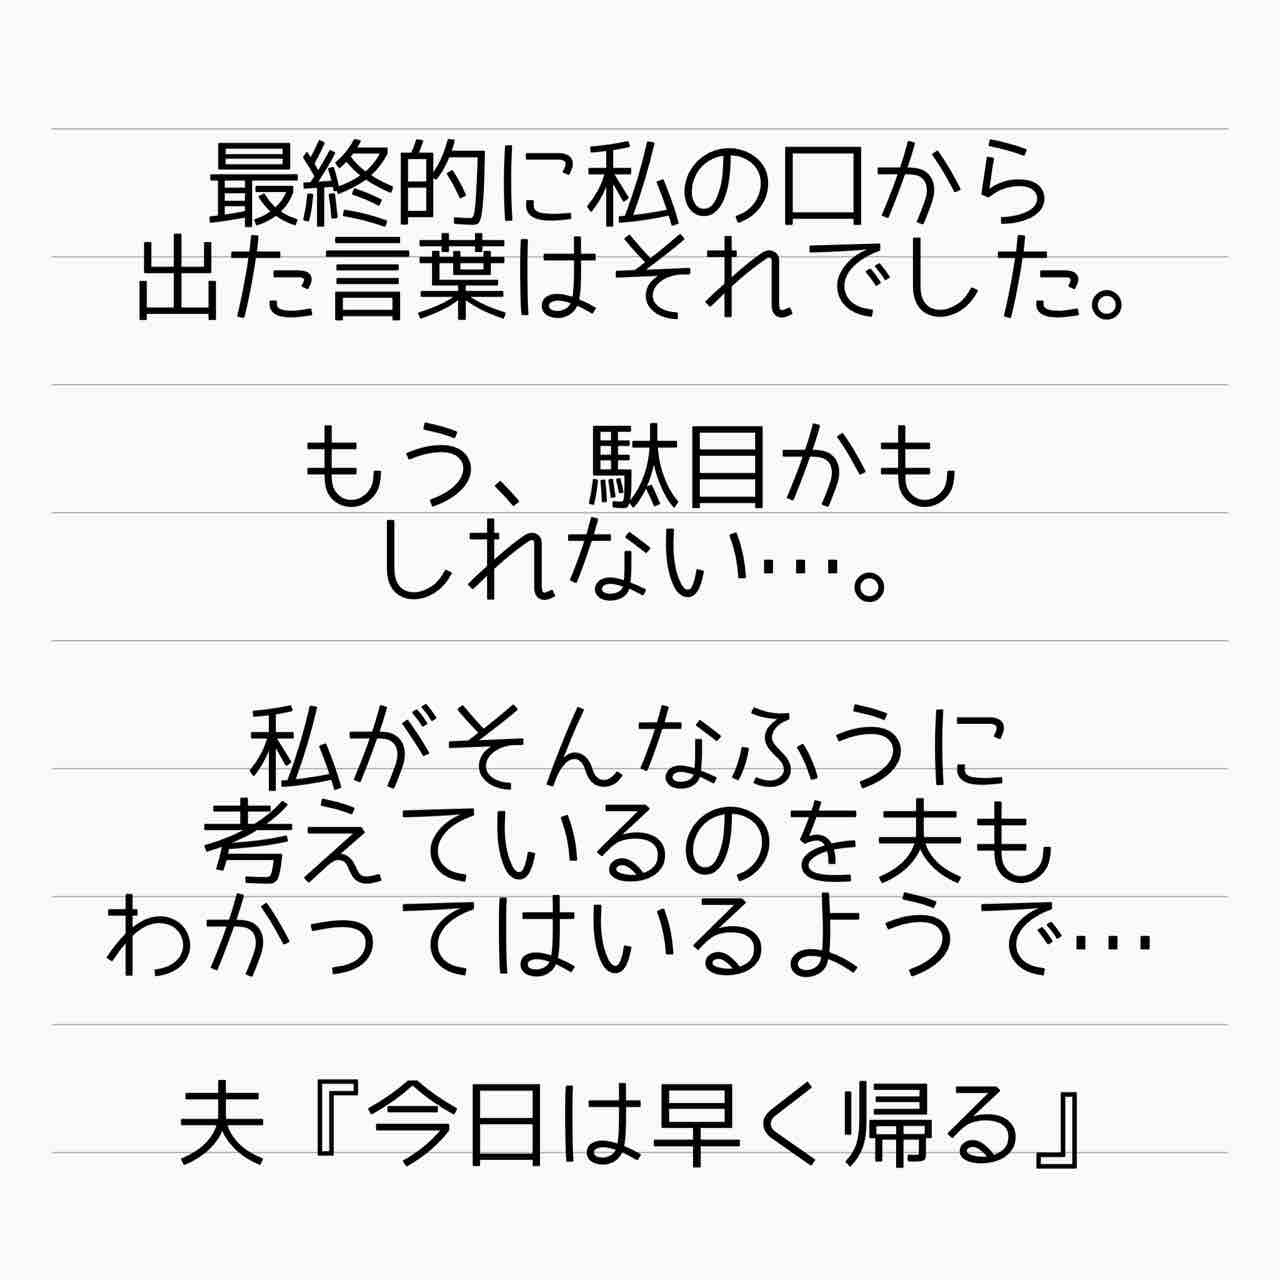 最終的に私の口から
出た言葉はそれでした。
もう、駄目かも
しれない…。
私がそんなふうに
考えているのを夫も
わかってはいるようで…
夫『今日は早く帰る』